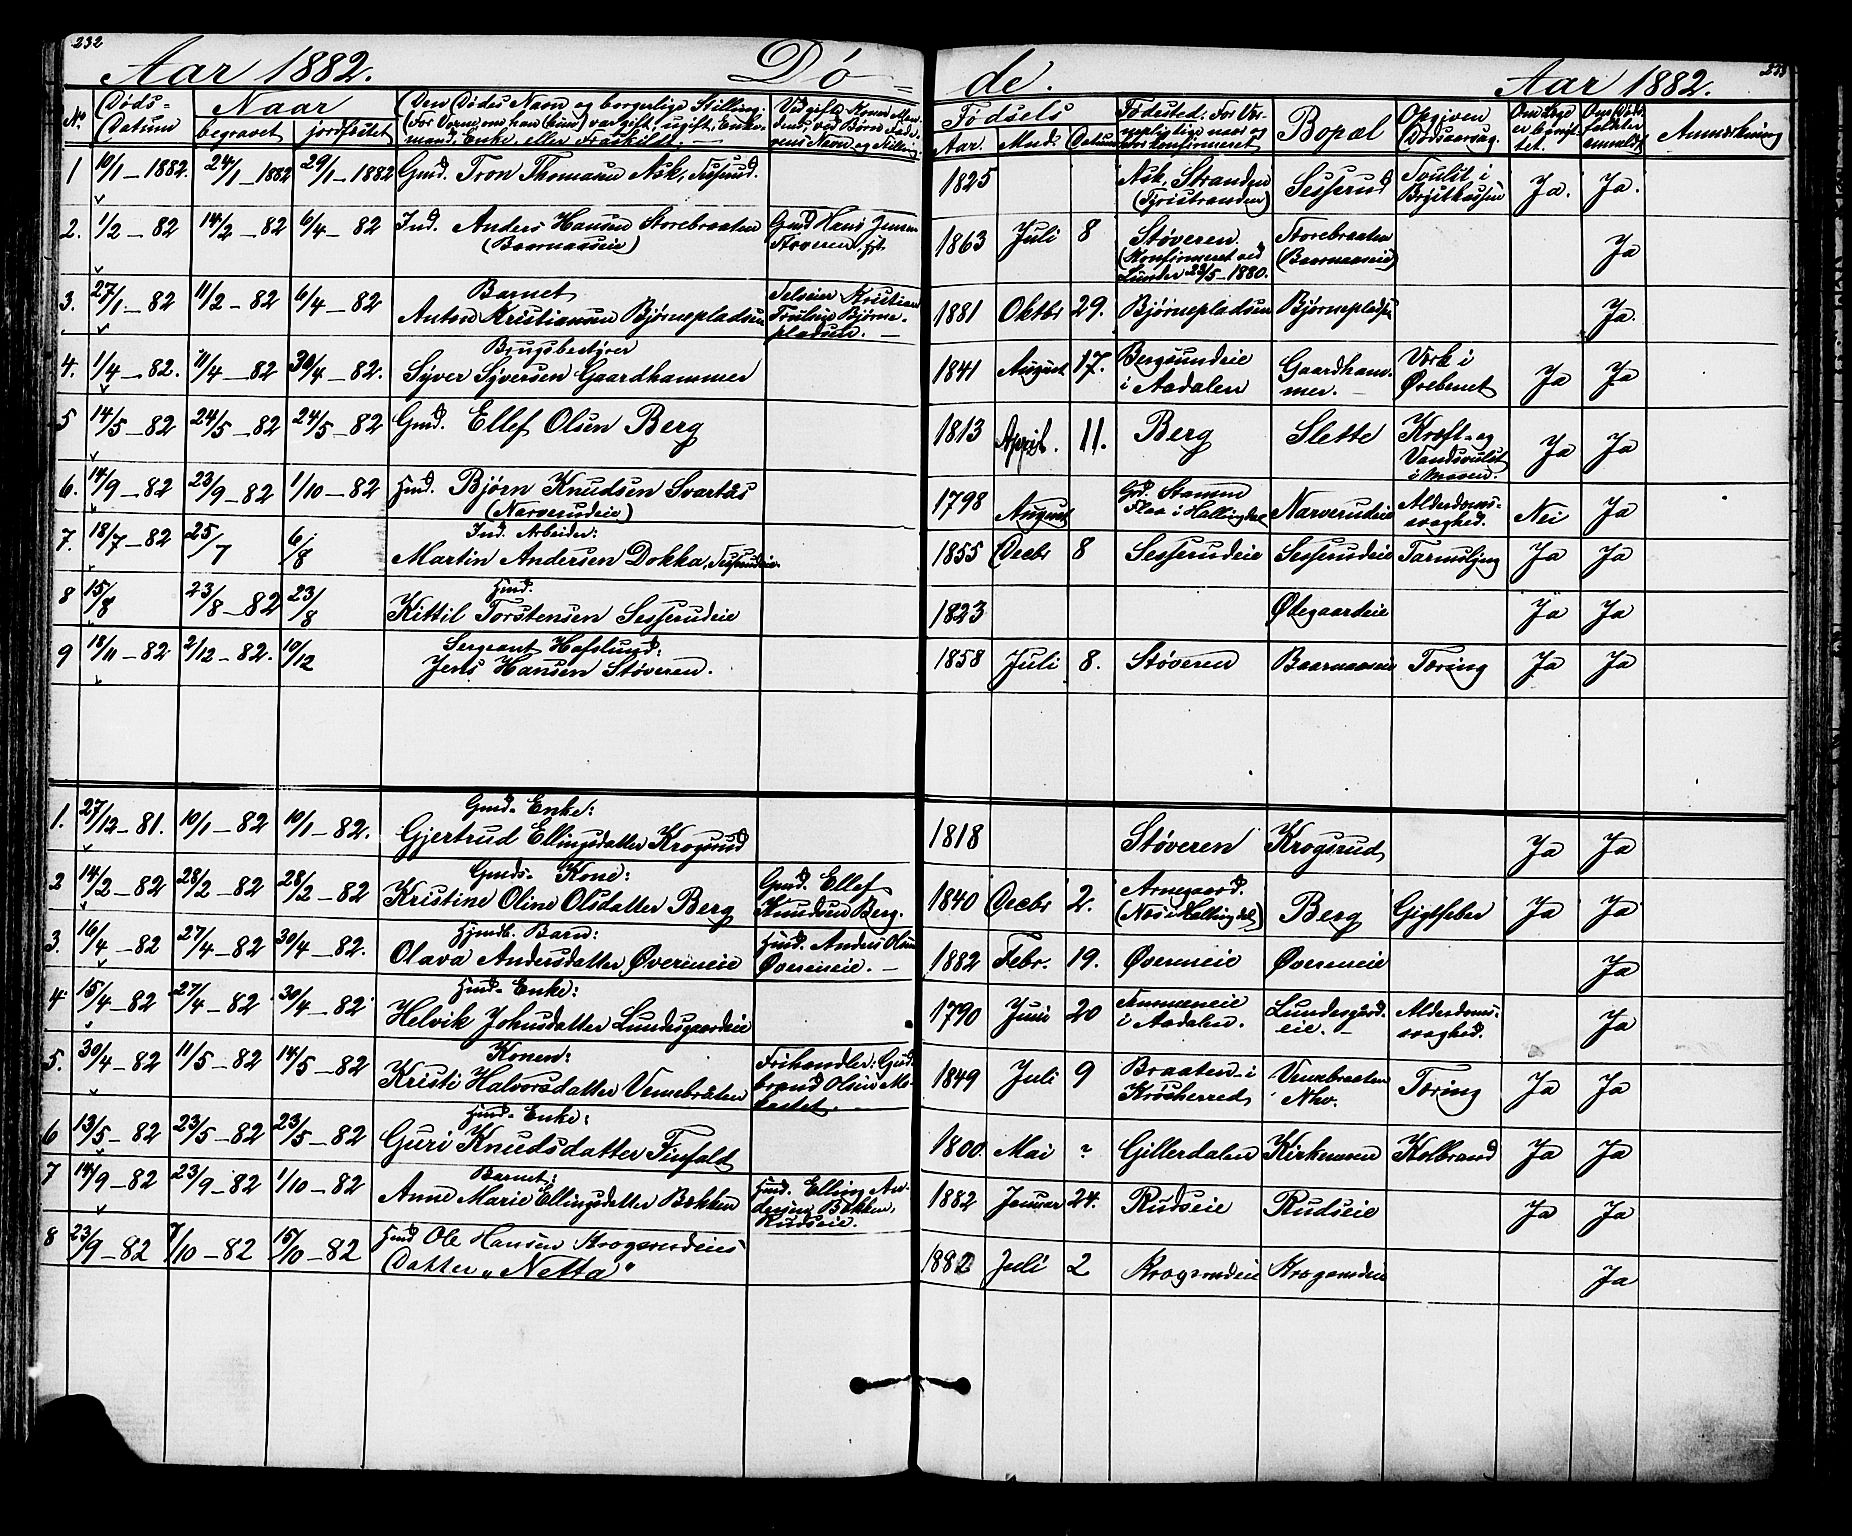 232
Aar 1882. Dø-
No. Døds-Datum Naar begravet jordfæstet Den Dødes Navn og borgerlige Stilling. (For Voxne, om han (hun) var gift, ugift, Enkemand, Enke, eller Fraskilt. — Ved gifte Koner Mandens, ved Børn Faderens Navn og Stilling
1 10/1-1882. 24/1-1882 29/1-1882 Gmd. Tron Thomasen Ask, Sesserud.
2. 1/2-82 14/2-82 6/4-82 Ind. Anders Hansen Storebraaten (Baarnaaseie) Gmd Hans Jensen Støveren
3. 27/1-82 11/2-82 6/4-82 Barnet Anton Kristiansen Bjørnepladsen Selveier Kristian Bjørnepladsen. —
4. 1/4-82. 11/4-82 30/4-82. Brugsbestyrer Syver Syversen Gaardhammer
5 14/5-82 24/5-82 24/5-82 Gmd. Ellef Olsen Berg
6. 14/9-82 23/9-82 1/10-82 Hmd. Bjørn Knudsen Svartås (Narverudeie)
7. 18/7-82 25/7 6/8 Ind. Arbeider: Martin Andersen Dokka, Sesserudeie.
8 15/8 23/8-82 23/8 Hmd. Kittil Torstensen Sesserudeie
9 18/11-82 2/12-82. 10/12 Sergeant Hafslund: Jens Hansen Støveren.
1. 27/12-81. 10/1-82 10/1-82. Gmd. Enke: Gjertrud Ellingsdatter Krogsrud
2 14/2-82 28/2-82 28/2-82 Gmds. Kone: Kristine Oline Olsdatter Berg Gmd. Ellef Knudsen Berg.
3. 16/4-82 27/4-82 30/4-82. Hjemdb. Barn: Olava Andersdatter Øverneie Hmd. Anders Olsen Øverneie. —
4 15/4-82 27/4-82 30/4-82. Hmd. Enke: Helvik Johnsdatter Lundesgaardeie
5. 30/4-82 11/5-82 14/5-82 Konen: Kristi Halvorsdatter Vennebråten Frihandler: Gudbrand Olsen
6 13/5-82 23/5-82 23/5-82 Hmd. Enke: Guri Knudsdatter Finfalt
7 14/9-82 23/9-82 1/10-82 Barnet: Anne Marie Ellingsdatter Bakken Hmd. Elling Andersen Bakken, Rudseie.
8 23/9-82 7/10-82 15/10-82 Hmd Ole Hansen Krogsrudeies Datter "Netta"
233
de. Aar 1882.
Fødsels Aar. Mnd. Datum Fødested. For Værnepligtige naar og hvor konfirmeret Bopæl Opgiven Dødsaarsag. Om Læge er benyttet. Om Dødsfaldet er anmeldt Anmærkning
1825 Ask, Stranden (Tyristranden) Sesserud Svulst i Brystkassen Ja. Ja.
1863 Juli 8 Støveren (Konfirmeret ved Lunder 23/5-1880. Storebraaten (Baarnaaseie) Ja
1881 Oktbr 29. Bjørnepladsen Bjørnepladsen Ja.
1841 August 17. Bergsundeie i Aadalen Gaardhammer. — Værk i Ørebenet Ja Ja
1813 April. 11. Berg Slette Kræft- og Vandsvulst i Maven. Ja Ja
1798 August Gd. Stamn Flaa i Hallingdal Narverudeie Alderdomssvaghed. Nei Ja
1855 Decbr 8 Sesserudeie Sesserudeie Tarmslyng Ja Ja
1823 Ødegaardeie Ja Ja
1858 Juli 8. Støveren Baarnaaseie Tæring Ja Ja
1818 Støveren Krogsrud Ja Ja
1840 Decbr 2. Arnegaard. (Næs i Hallingdal) Berg Gigtfeber Ja Ja
1882 Febr. 19. Øverneie Øverneie Ja
1790 Juni 20 i Aadalen. Lundesgårdeie. — Alderdomssvaghed. Ja
1849 Juli 9 Braaten i Krødsherred Vennebraaten Nhv. Tæring Ja Ja
1800. Mai ? Gillerdalen Kirkemoen Kolbrand Ja Ja
1882 Januar 24. Rudseie Rudseie Ja Ja
1882 Juli 2 Krogsrudeie Krogsrudeie Ja